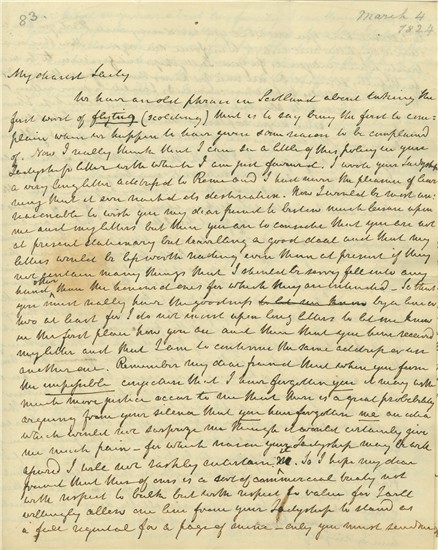 83.
March 4
1824
My dearest Lady
We have an old phrase in Scotland about taking the
first word of flyting (scolding) that is to say being the first to com=
plain when we happen to have given some reason to be complained
of. Now I really think that I can see a little of this policy in your
Ladyships letter with which I am just favoured. I wrote your Ladyship
a very long letter addressd to Rome and I had never the pleasure of lear
ning that it even reached its destination. Now I would be most un=
reasonable to wish you my dear friend to bestow much leisure upon
me and my letters but then you are to consider that you are not
at present stationary but travelling a good deal and that my
letters would be less worth reading even than at present if they
not contain many things that I should be sorry fell into any
other
hands than the honoured ones for which they are intended. So that
you must really have the goodness to let me know by a line or
two at least for I do not insist upon long letters to let me know
in the first place how you are and then that you have received
my letter and that I am to continue the same address or use
another one. Remember my dear friend that when you form
the impossible conjecture that I have forgotten you it may with
much more justice occur to me that there is a great probability
arguing from your silence that you have forgotten me an idea
which would not surprize me though it would certainly give
me much pain – for which reason your Ladyship may be well
assured I will not rashly entertain it. So I hope my dear
friend that this of ours is a sort of commercial treaty not
with respect to bulk but with respect to value for I will
willingly allow one line from your Ladyship to stand as
a full requital for a page of mine – only you must send me